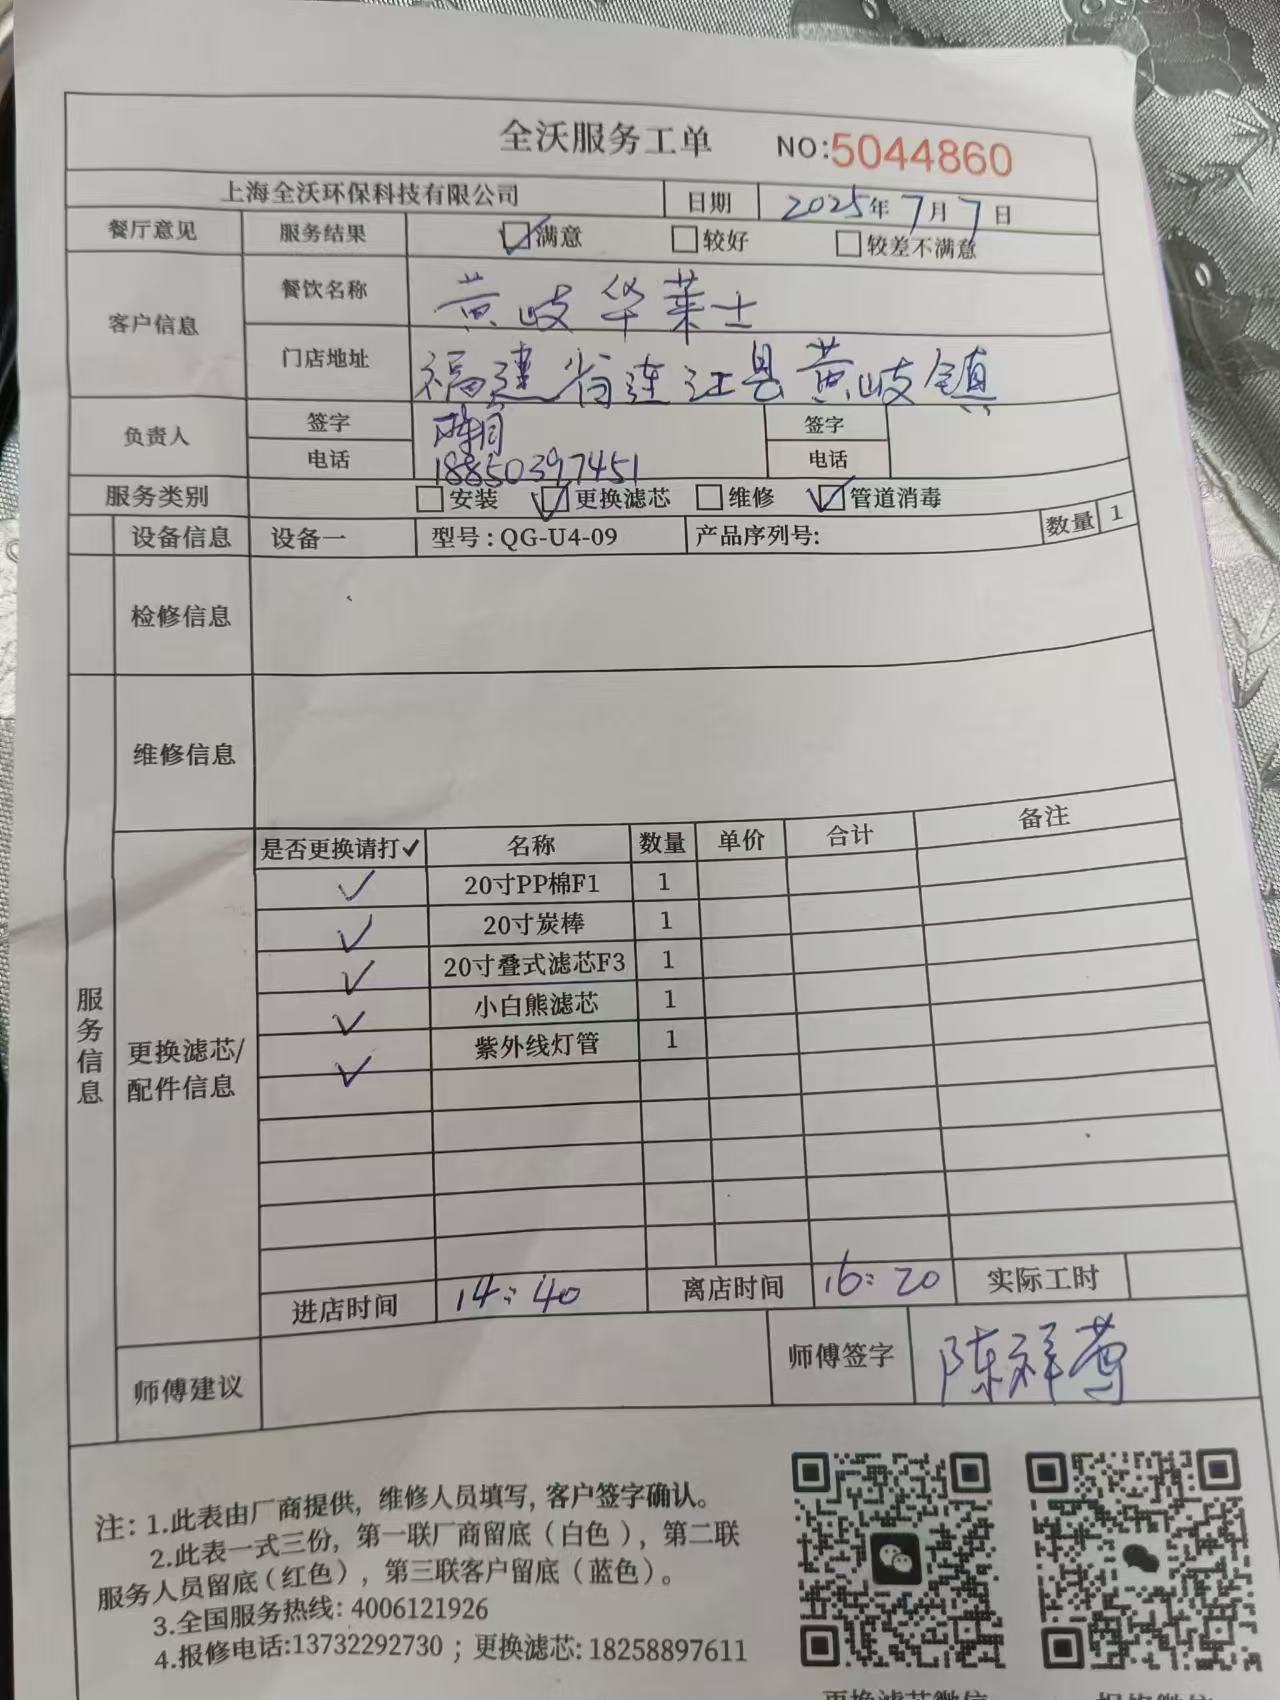 全沃服务工单 NO:5044860
上海全沃环保科技有限公司 日期 2025年7月7日
餐厅意见 服务结果 ☑满意 □较好 □较差不满意
客户信息 餐饮名称 黄岐华莱士
门店地址 福建省连江县黄岐镇
负责人 签字 签字
电话 18850397451 电话
服务类别 □安装 ☑更换滤芯 □维修 ☑管道消毒
设备信息 设备一 型号:QG-U4-09 产品序列号: 数量 1
检修信息
维修信息
服务信息
更换滤芯/配件信息
是否更换请打✓ 名称 数量 单价 合计 备注
✓ 20寸PP棉F1 1
✓ 20寸炭棒 1
✓ 20寸叠式滤芯F3 1
✓ 小白熊滤芯 1
✓ 紫外线灯管 1
进店时间 14:40 离店时间 16:20 实际工时
师傅建议 师傅签字 陈祥
注:1.此表由厂商提供,维修人员填写,客户签字确认。
2.此表一式三份,第一联厂商留底(白色),第二联
服务人员留底(红色),第三联客户留底(蓝色)。
3.全国服务热线:4006121926
4.报修电话:13732292730;更换滤芯:18258897611
更换滤芯微信 报修微信